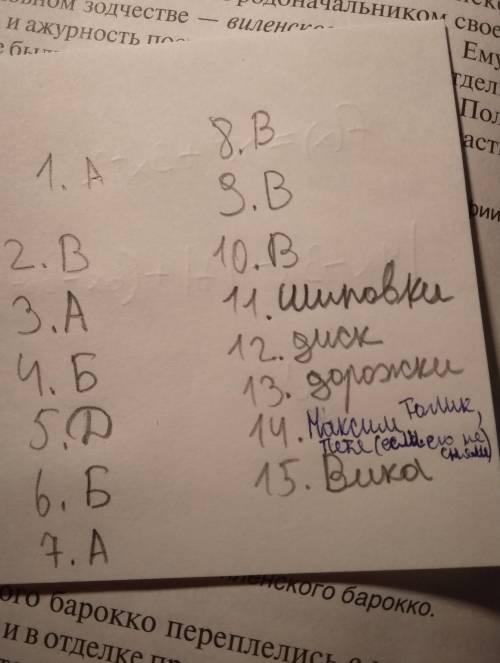 зодчестве — виленско
родоначальником свое
и ажурность
Ему
1. А
2. В
3. А
4. Б
5. Д
6. Б
7. А
8. В
9. В
10. В
11. шиповки
12. диск
13. дорожки
14. Максим, Толик,
Петя (если его не
сняли)
15. Вика
ленского барокко.
ого барокко переплелись с
и в отделке